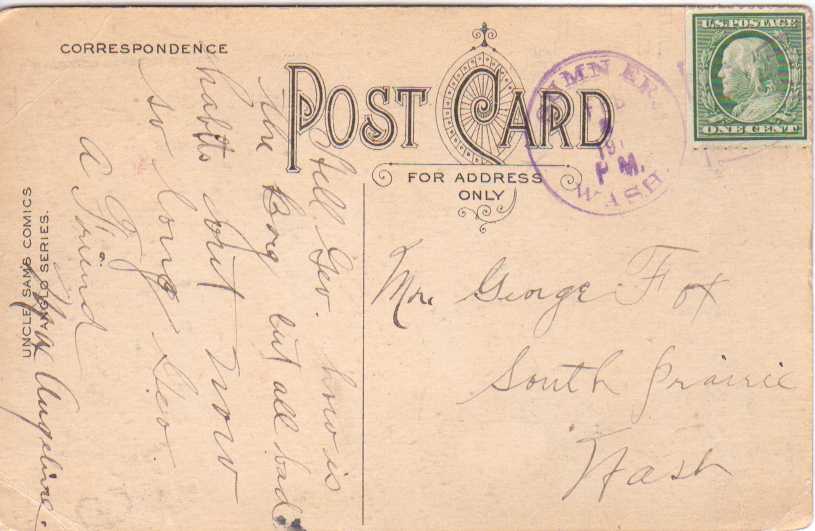 CORRESPONDENCE
POST CARD
FOR ADDRESS
ONLY
U.S. POSTAGE
ONE CENT
SUMNER.
191
P M.
WASH.
Mr. George Fox
South Prairie
Wash
Hell Geo. how is
the Boy cut all bad
habits out now
so long Geo.
a Friend
W Angeline.
UNCLE SAM'S COMICS
ANGLO SERIES.